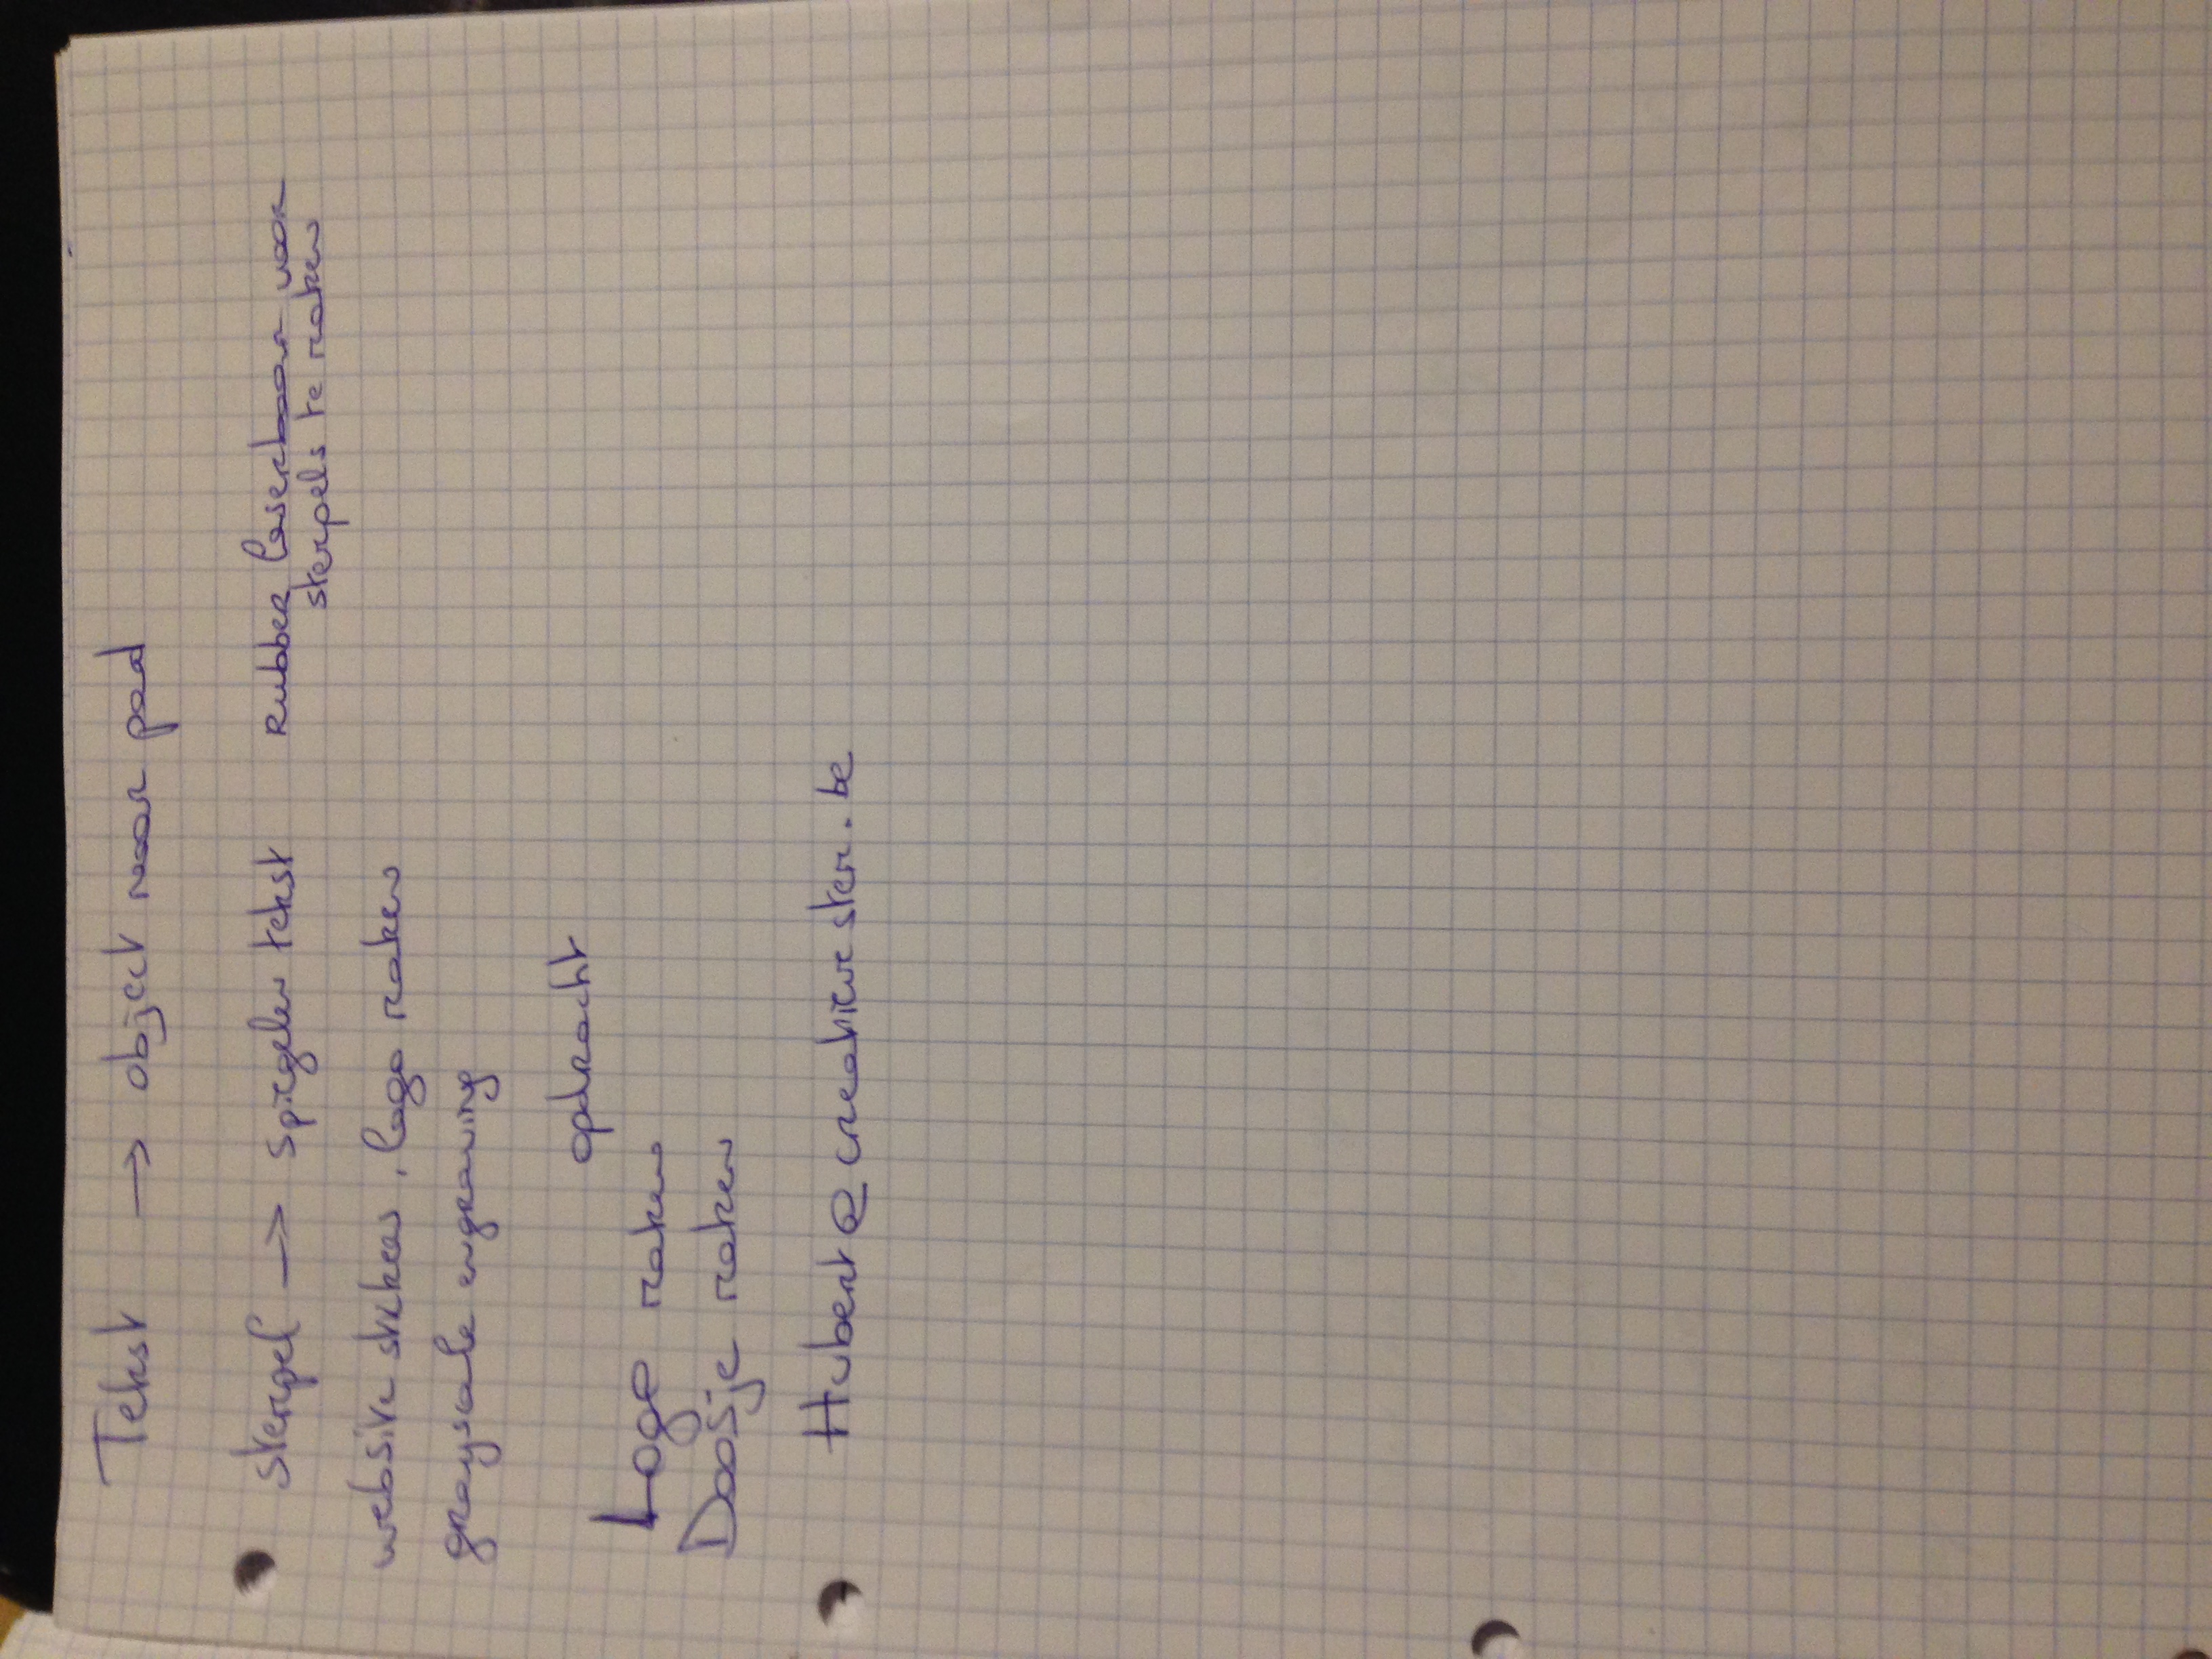 Tekst → object naar pad
stempel → spiegelen tekst rubber laserbaar voor
stempels te maken
website stickers, logo maken
grayscale engraving
opdracht
Logo maken
Doosje maken
Hubert@creatievestem.be